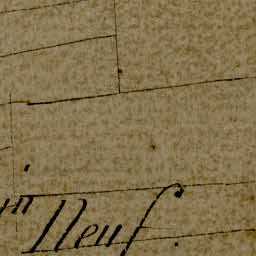 in Neuf.